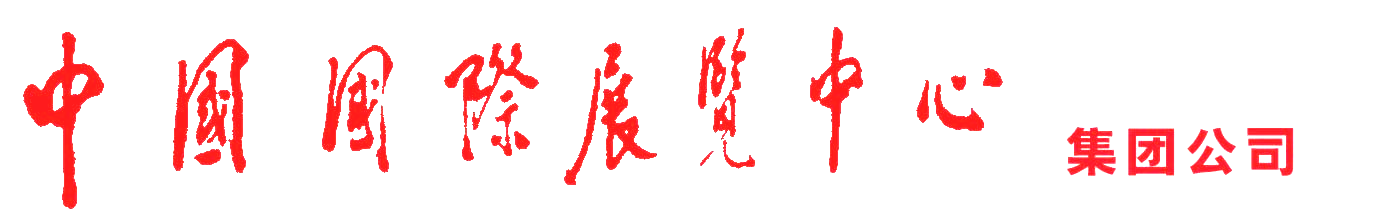 中國國際展覽中心集团公司